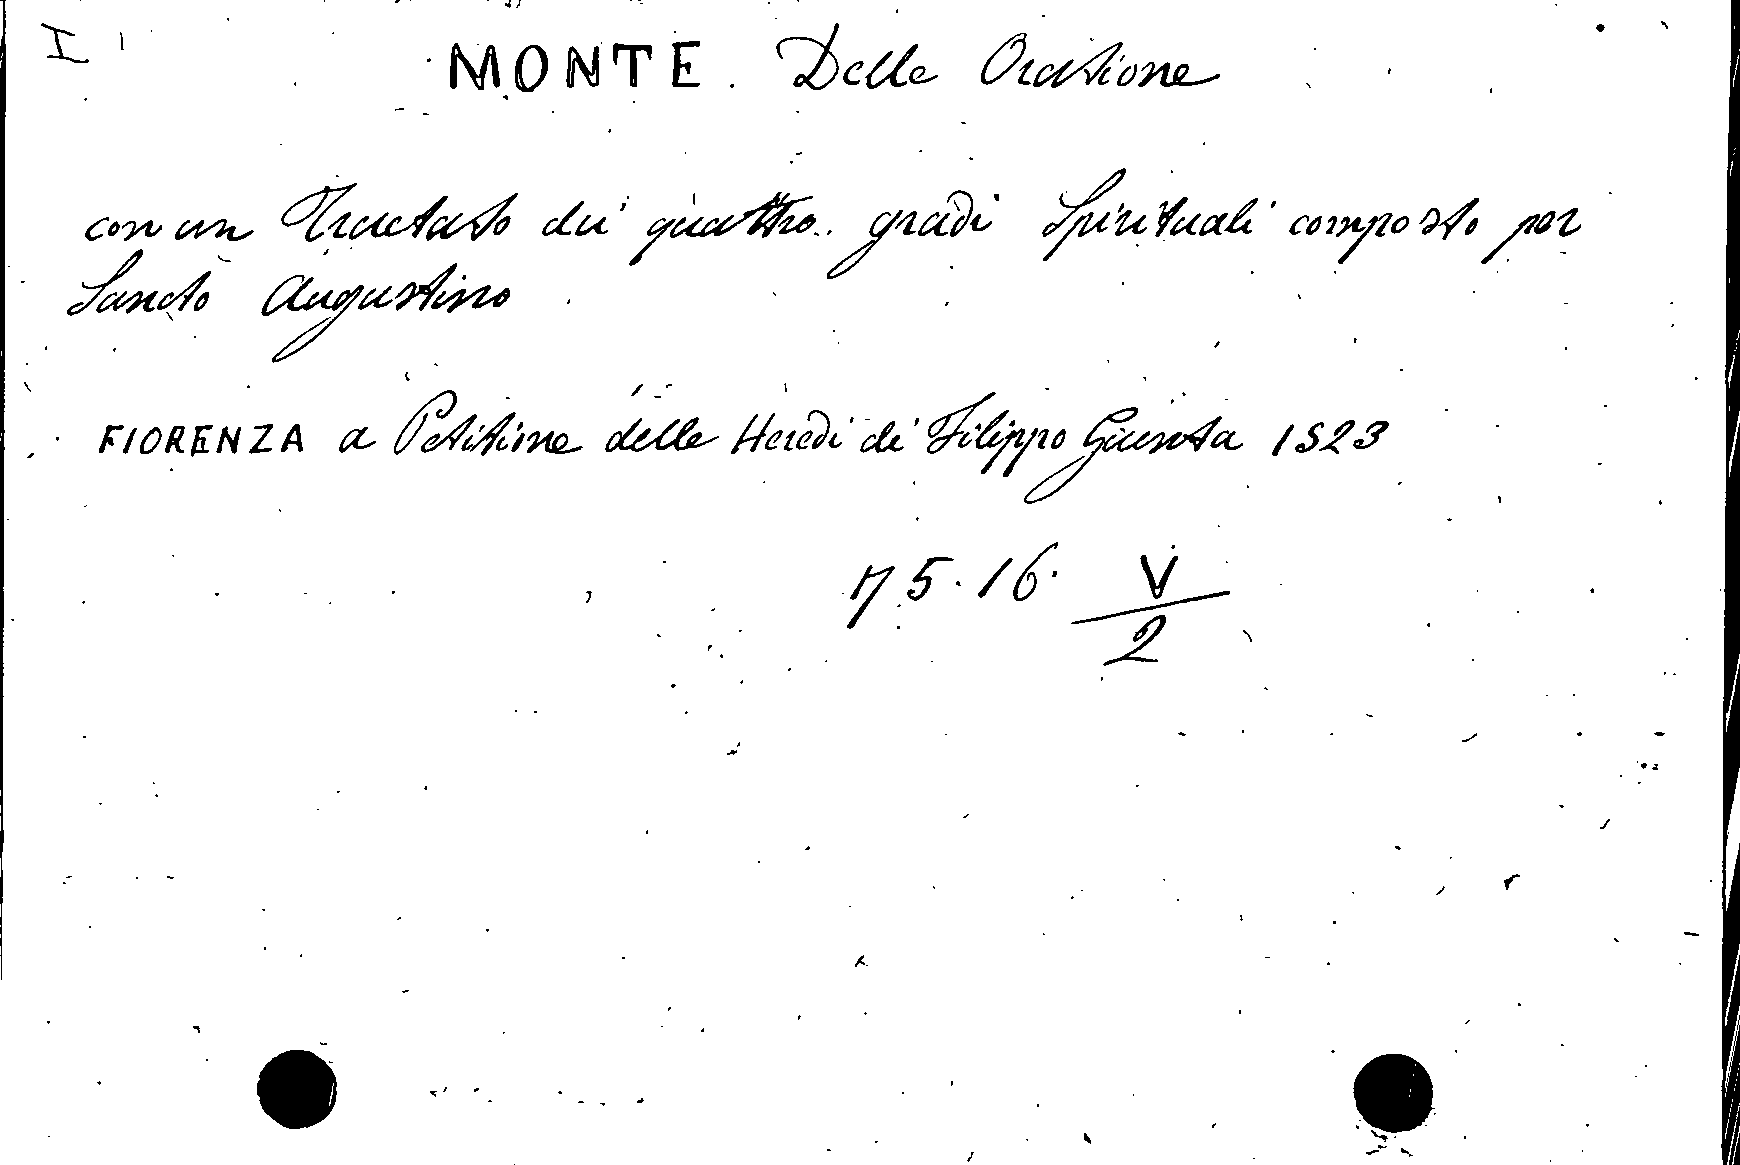 I
MONTE. Delle Oratione
con un Tractato dei quattro gradi Spirituali composto per
Sancto Augustino
FIORENZA a Petitione delle Heredi di Filippo Giunta 1523
75.16. V
2